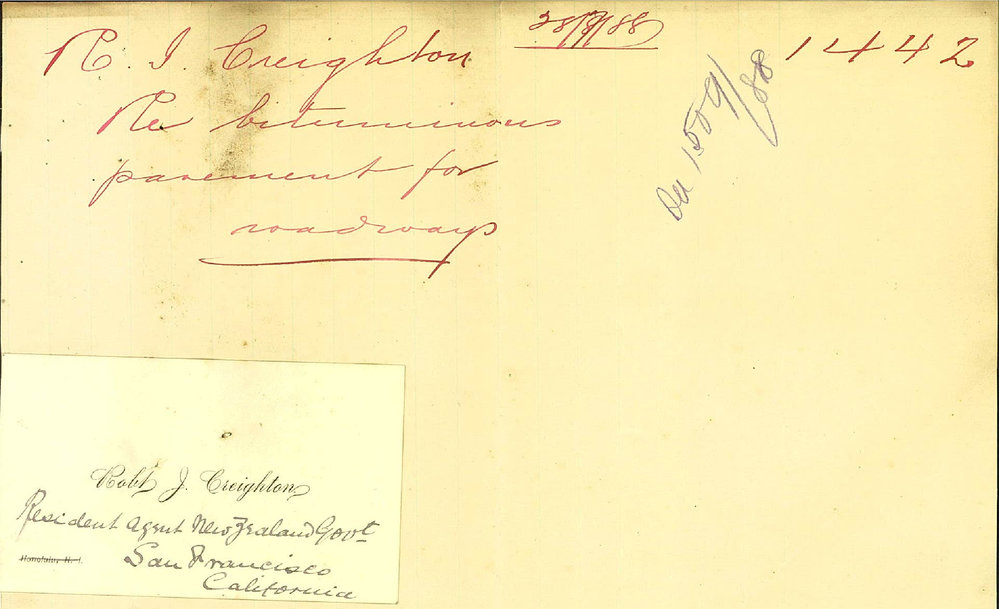 R. J. Creighton
28/8/88
1442
Re bituminous
pavement for
roadways
1509/88
Robt J. Creighton
Resident Agent New Zealand Govt
Honolulu, H. I.
San Francisco
California